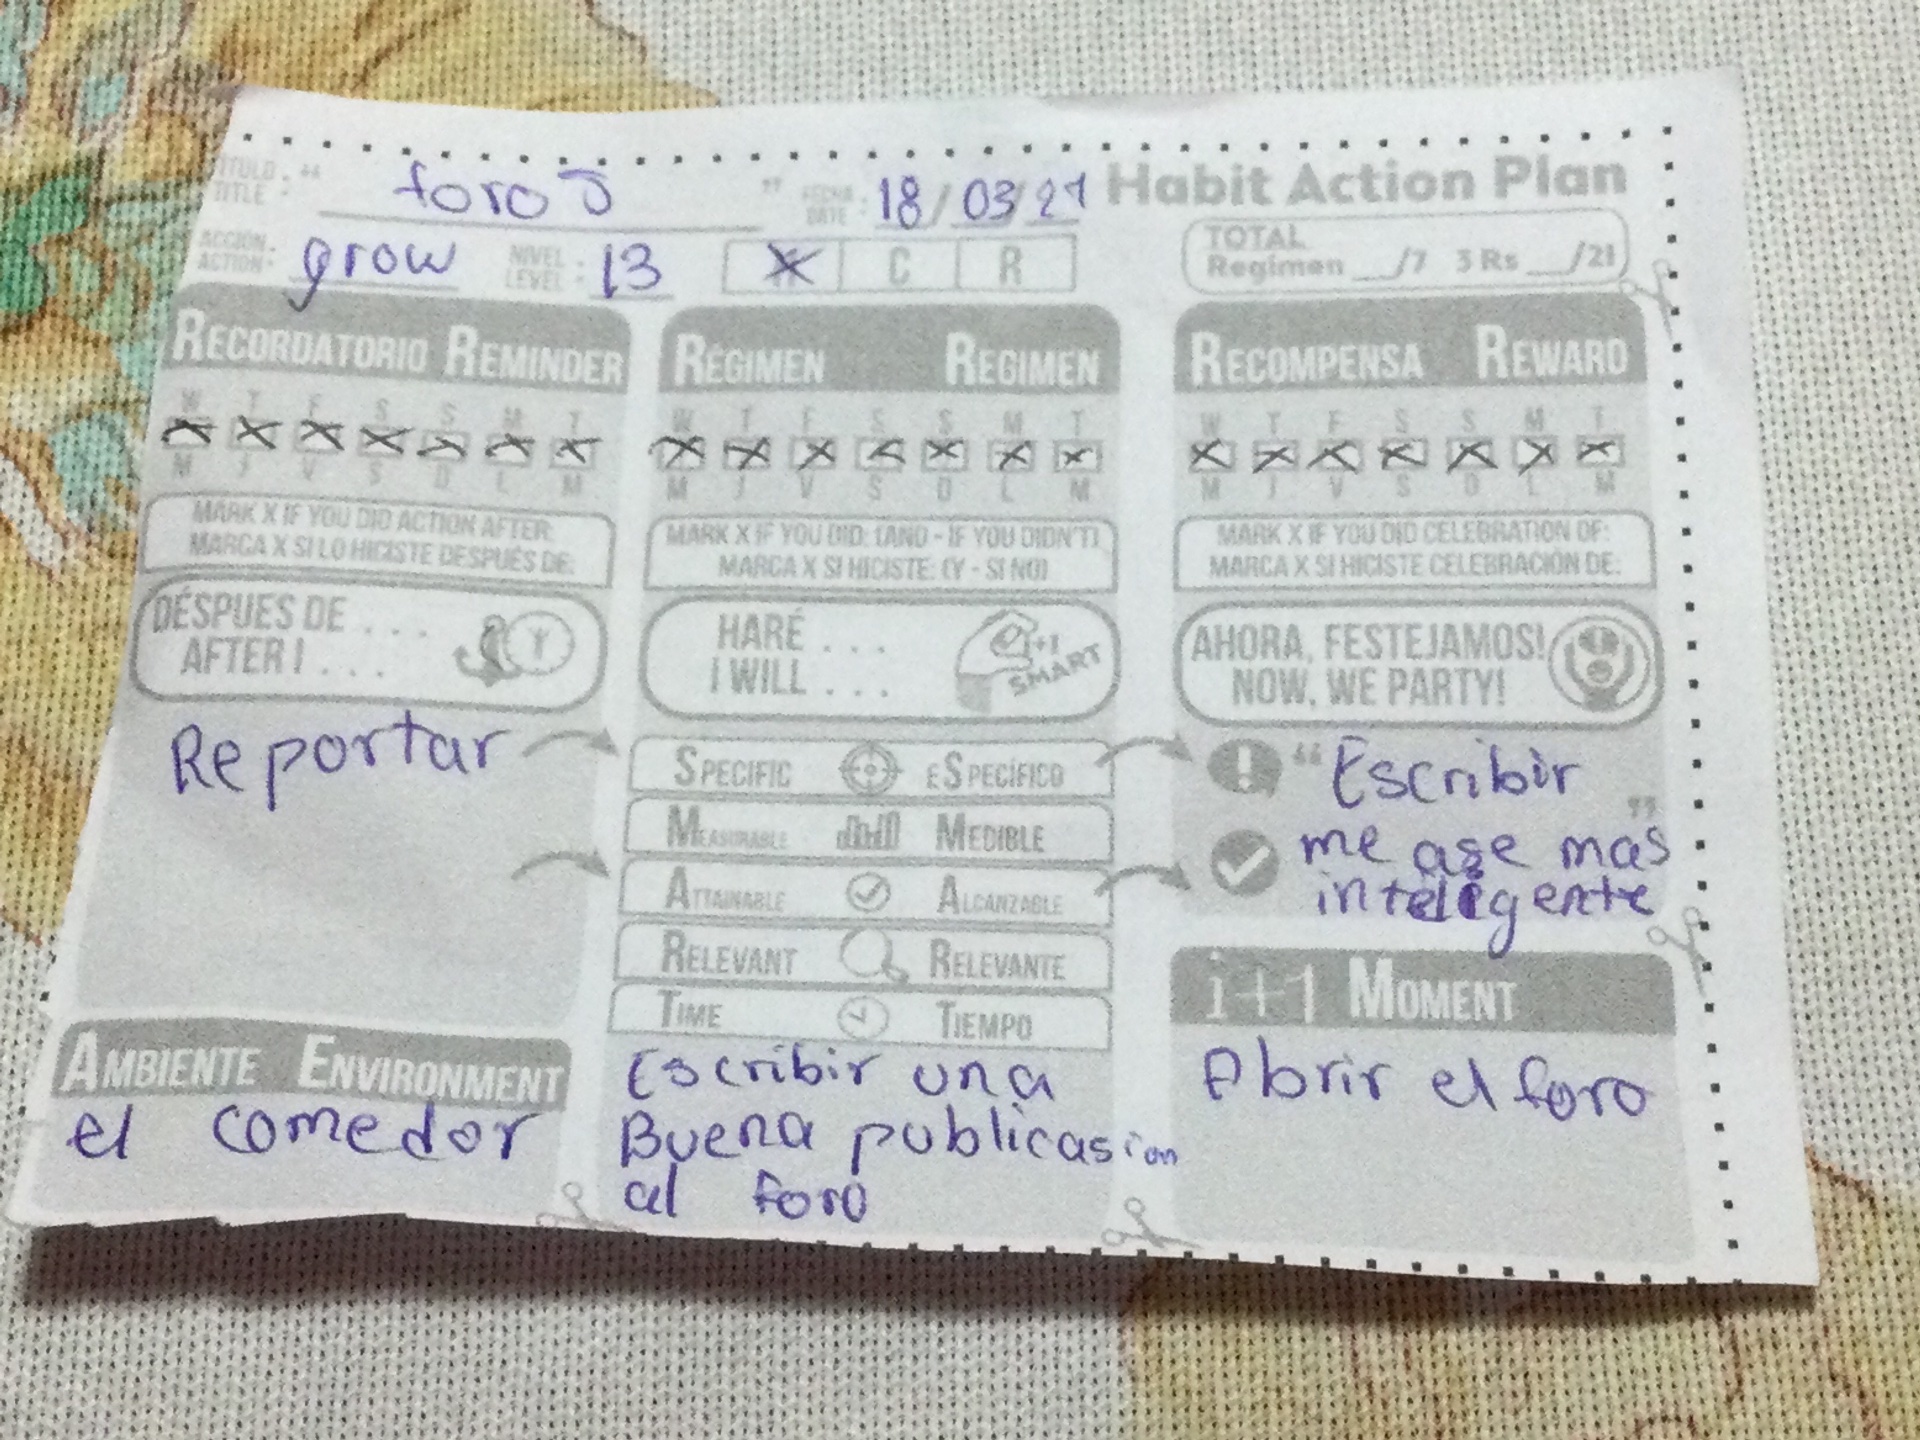 TÍTULO : “ foro J ” FECHA : 18/03/21 Habit Action Plan
TITLE DATE
ACCIÓN grow NIVEL : 13 C R
ACTION LEVEL
TOTAL
Regimen __/7 3 Rs __/21
RECORDATORIO REMINDER
W T F S S M T
M J V S D L M
MARK X IF YOU DID ACTION AFTER:
MARCA X SI LO HICISTE DESPUÉS DE:
DÉSPUES DE . . .
AFTER I . . .
Reportar
AMBIENTE ENVIRONMENT
el comedor
RÉGIMEN REGIMEN
W T F S S M T
M J V S D L M
MARK X IF YOU DID: (AND - IF YOU DIDN'T)
MARCA X SI HICISTE: (Y - SI NO)
HARÉ . . .
I WILL . . .
i+1
SMART
SPECIFIC eSPECÍFICO
MEASURABLE MEDIBLE
ATTAINABLE ALCANZABLE
RELEVANT RELEVANTE
TIME TIEMPO
Escribir una
Buena publicasion
al foro
RECOMPENSA REWARD
W T F S S M T
M J V S D L M
MARK X IF YOU DID CELEBRATION OF:
MARCA X SI HICISTE CELEBRACIÓN DE:
AHORA, FESTEJAMOS!
NOW, WE PARTY!
“ Escribir ”
me ase mas
inteligente
i+1 MOMENT
Abrir el foro